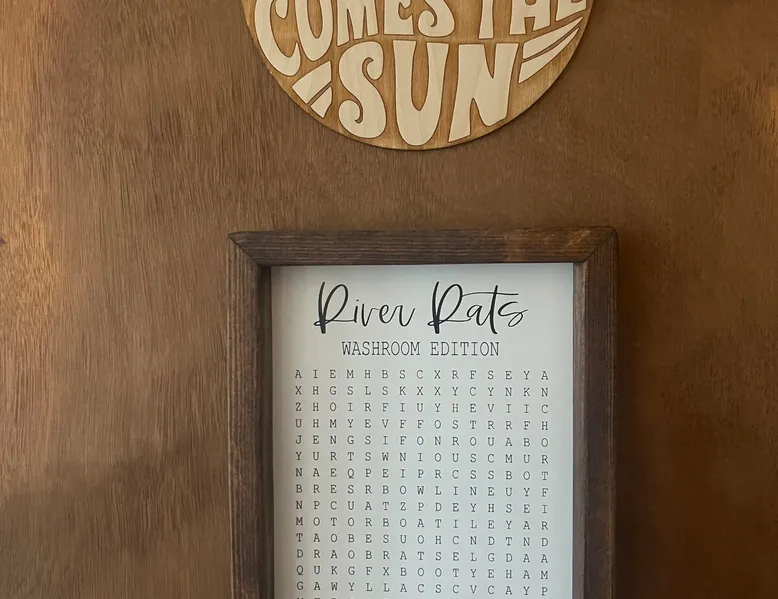 COMES THE
SUN
River Rats
WASHROOM EDITION
A I E M H B S C X R F S E Y A
X H G S L S K X X Y C Y N K N
Z H O I R F I U Y H E V I I C
U H M Y E V F F O S T R R F H
J E N G S I F O N R O U A B O
Y U R T S W N I O U S C M U R
N A E Q P E I P R C S S B O T
B R E S R B O W L I N E U Y F
N P C U A T Z P D E Y H S E I
M O T O R B O A T I L E Y A R
T A O B E S U O H C N D T N D
D R A O B R A T S E L G D A A
Q U K G F X B O O T Y E H A M
G A W Y L L A C S C V C A Y P